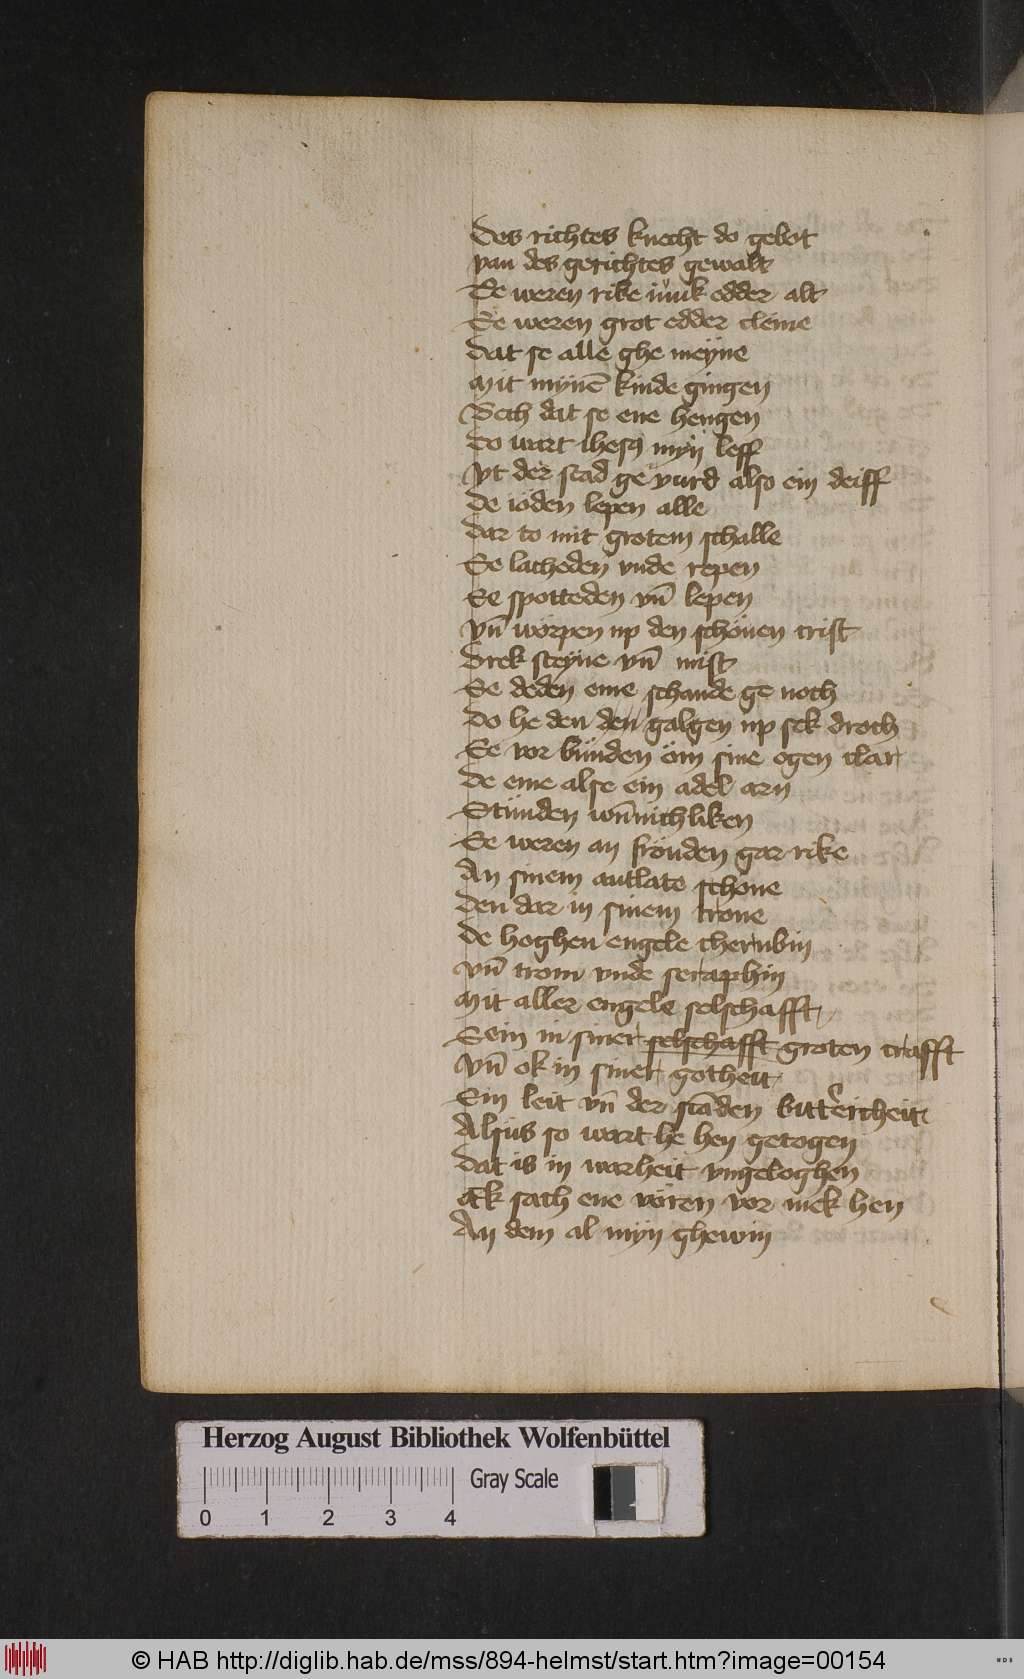 Des richtes knecht do gebot
van des gerichtes gewalt
Se weren rike iunk edder alt
Se weren grot edder cleine
dat se alle ghe meÿne
Mit mÿnē kinde gingen
Sech dat se ene hengen
Do wart ihesꝰ mÿn leff
Vt der stad ge vurd also ein deiff
De ioden lepen alle
dar to mit grotem schalle
Se lacheden vnde repen
Se spotteden vn̄ lepen
vn̄ worpen up den schönen crist
Drek steÿne vn̄ mist
Se deden eme schande ge noch
Do he den den galgen up sek droch
Se vor bünden öm sine ogen clar
De eme alse ein adel arn
Stünden wn̄nichliken
Se weren an fröuden gar rike
An sinem antlate schone
Den dar in sinem trone
De hoghen engele cherubin
vn̄ troni vnde seraphin
Mit aller engele selschafft
Sein in siner selschafft groten crafft
Vn̄ ok in siner gotheit
Ein leit vn̄ der stāden bittericheit
Alsus so wart he hen getogen
Dat is in warheit vngeloghen
Ek sach ene vören vor mek hen
An dem al mÿn ghewin
Herzog August Bibliothek Wolfenbüttel
Gray Scale
0 1 2 3 4
© HAB http://diglib.hab.de/mss/894-helmst/start.htm?image=00154